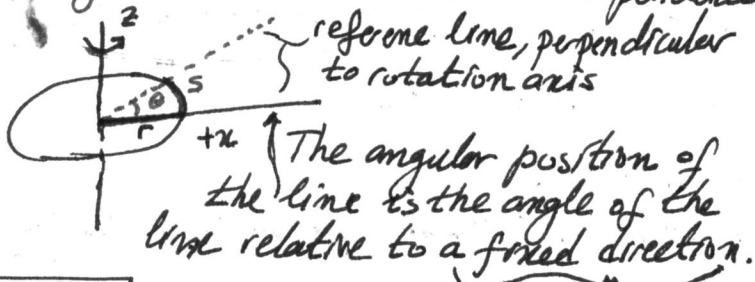 z
referene line, perpendicular
to rotation axis
s
θ
r
+x
The angular position of
the line is the angle of the
line relative to a fixed direction.